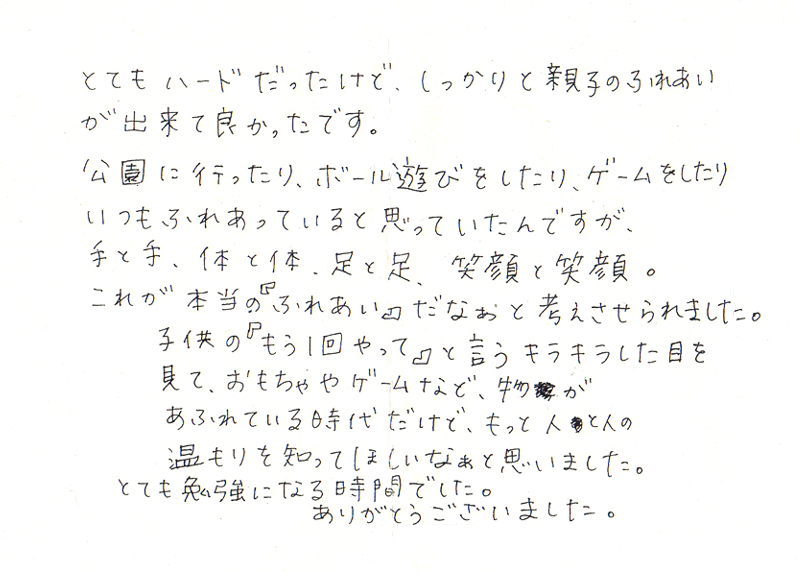 とてもハードだったけど、しっかりと親子のふれあい
が出来て良かったです。
公園に行ったり、ボール遊びをしたり、ゲームをしたり
いつもふれあっていると思っていたんですが、
手と手、体と体、足と足、笑顔と笑顔。
これが本当の『ふれあい』だなぉと考えさせられました。
子供の『もう1回やって』と言うキラキラした目を
見て、おもちゃやゲームなど、物が
あふれている時代だけど、もっと人と人の
温もりを知ってほしいなぁと思いました。
とても勉強になる時間でした。
ありがとうございました。